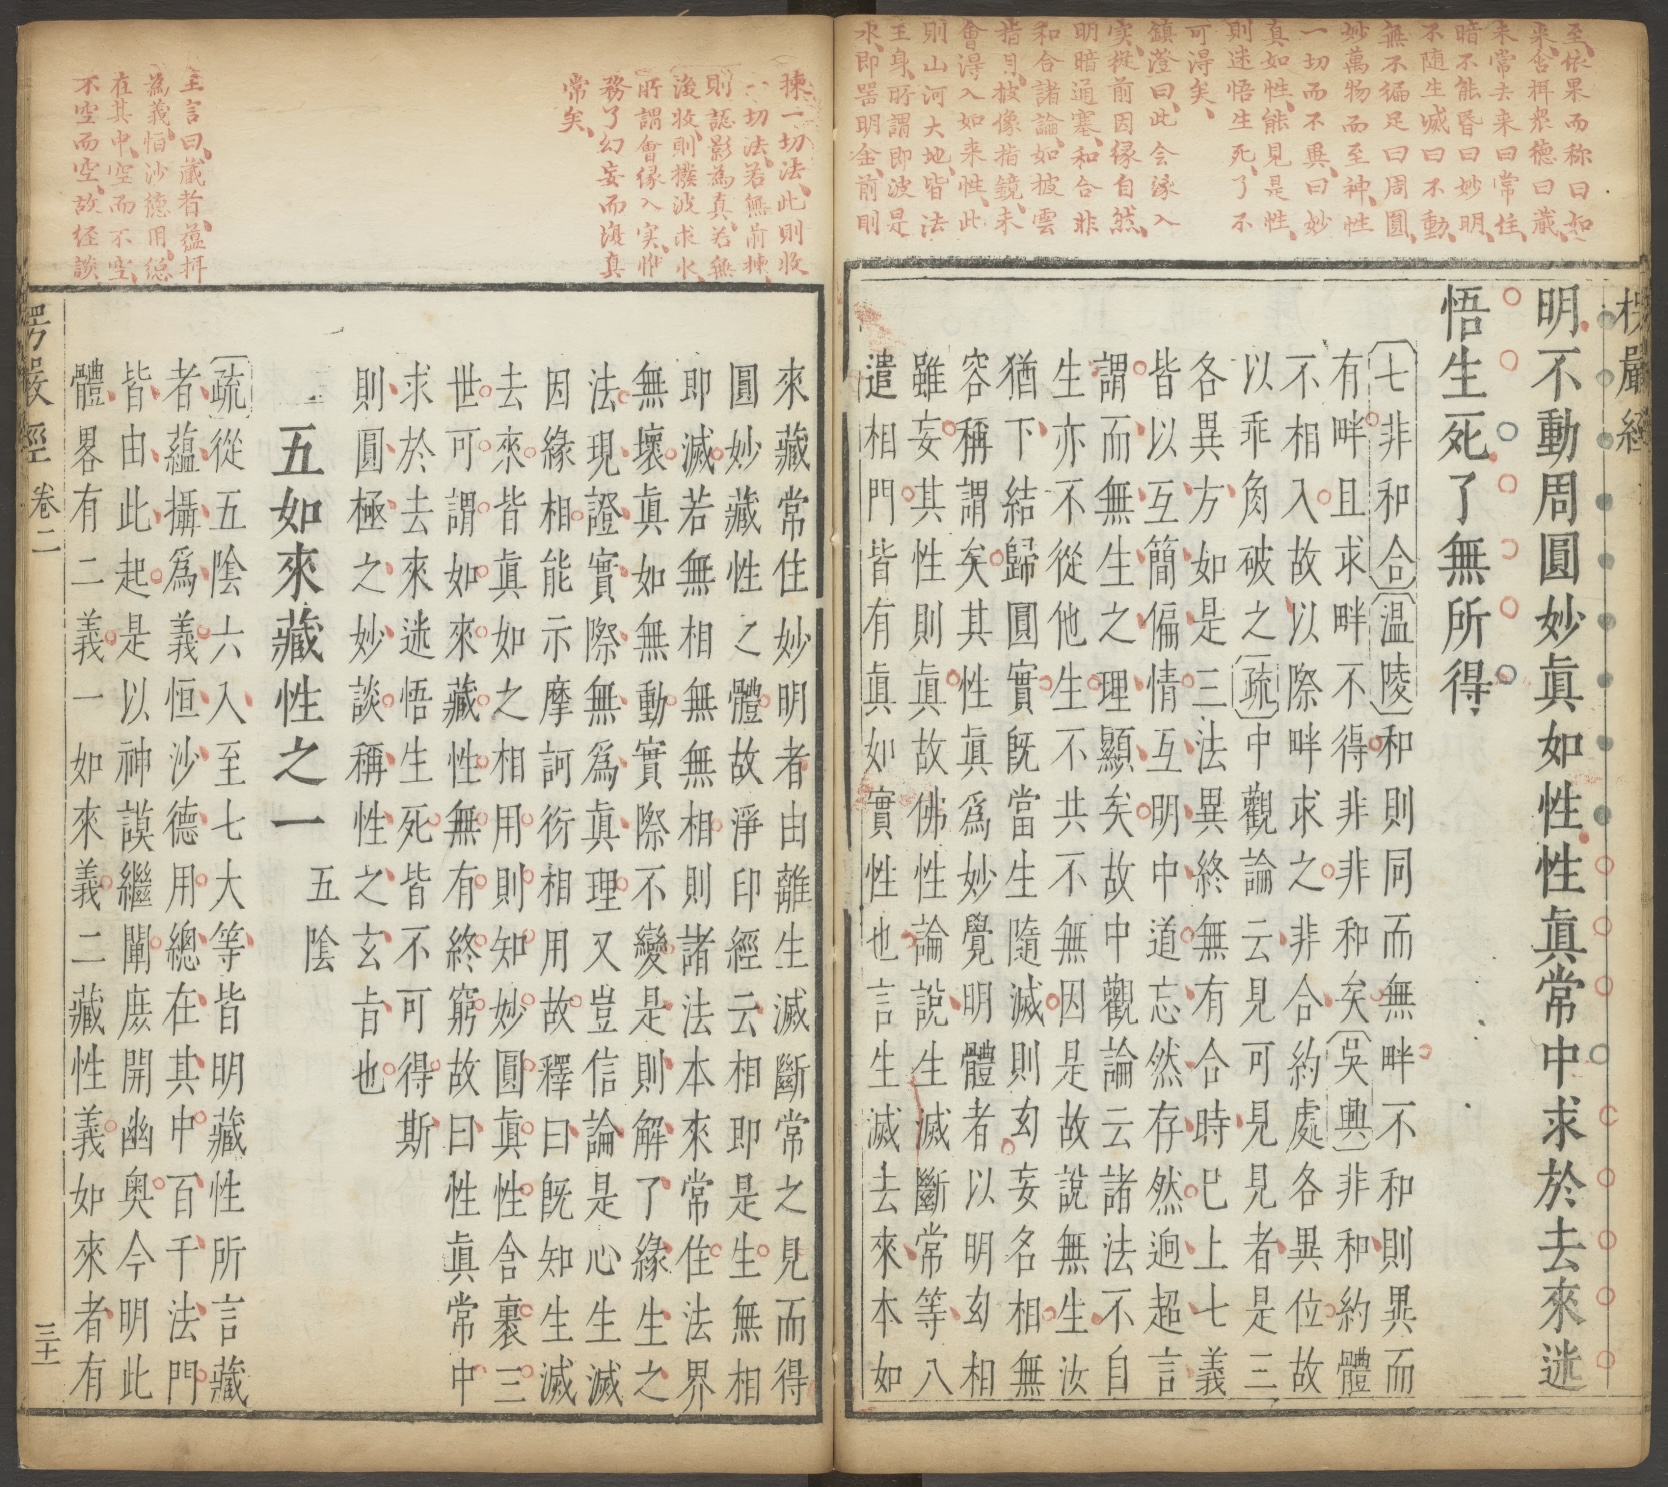 至、依果而称曰如
来、含柙衆德曰蔵、
来常去来曰常住、
暗不能昏曰妙明、
不随生滅曰不動、
無不徧足曰周圓、
妙萬物而至神、性
一切而不異、曰妙
真如性、能見是性、
則迷悟生死、了不
可得矣、
鎮澄曰、此会緣入
实、從前因縁自然、
明暗通塞、和合非
和合諸論、如披雲
指月、披像指鏡、未
會得入如来性、此
則山河大地、皆法
王身、所謂即波是
水、即器明金、前則
楞嚴經
明不動周圓妙眞如性性眞常中求於去來迷
悟生死了無所得
七非和合温陵和則同而無畔不和則異而
有畔且求畔不得非非和矣吳興非和約體
不相入故以際畔求之非合約處各異位故
以乖角破之疏中觀論云見可見見者是三
各異方如是三法異終無有合時巳上七義
皆以互簡偏情互明中道忘然存然逈超言
謂而無生之理顯矣故中觀論云諸法不自
生亦不從他生不共不無因是故說無生汝
猶下結歸圓實旣當生隨滅則幻妄名相無
容稱謂矣其性眞為妙覺明體者以明幻相
雖妄其性則眞故佛性論說生滅斷常等八
遣相門皆有眞如實性也言生滅去來本如
揀一切法、此則收
一切法、若無前揀、
則認影為真、若無
後收、則撥波求水、
所謂會縁入实、惟
務了幻妄而復真
常矣、
來藏常住妙明者由離生滅斷常之見而得
圓妙藏性之體故淨印經云相即是生無相
即滅若無相無無相則諸法本來常住法界
無壞眞如無動實際不變是則解了緣生之
法現證實際無為眞理又豈信論是心生滅
因緣相能示摩訶衍相用故釋曰旣知生滅
去來皆眞如之相用則知妙圓眞性含裹三
世可謂如來藏性無有終窮故曰性眞常中
求於去來迷悟生死皆不可得斯
則圓極之妙談稱性之玄旨也
五如來藏性之一 五陰
主言曰、藏者、蘊柙
為義、恒沙德用、總
在其中、空而不空、
不空而空、故经談
疏從五陰六入至七大等皆明藏性所言藏
者蘊攝為義恒沙德用總在其中百千法門
皆由此起是以神謨繼闡庶開幽奧今明此
體畧有二義一如來義二藏性義如來者有
楞嚴經 卷二 三十一